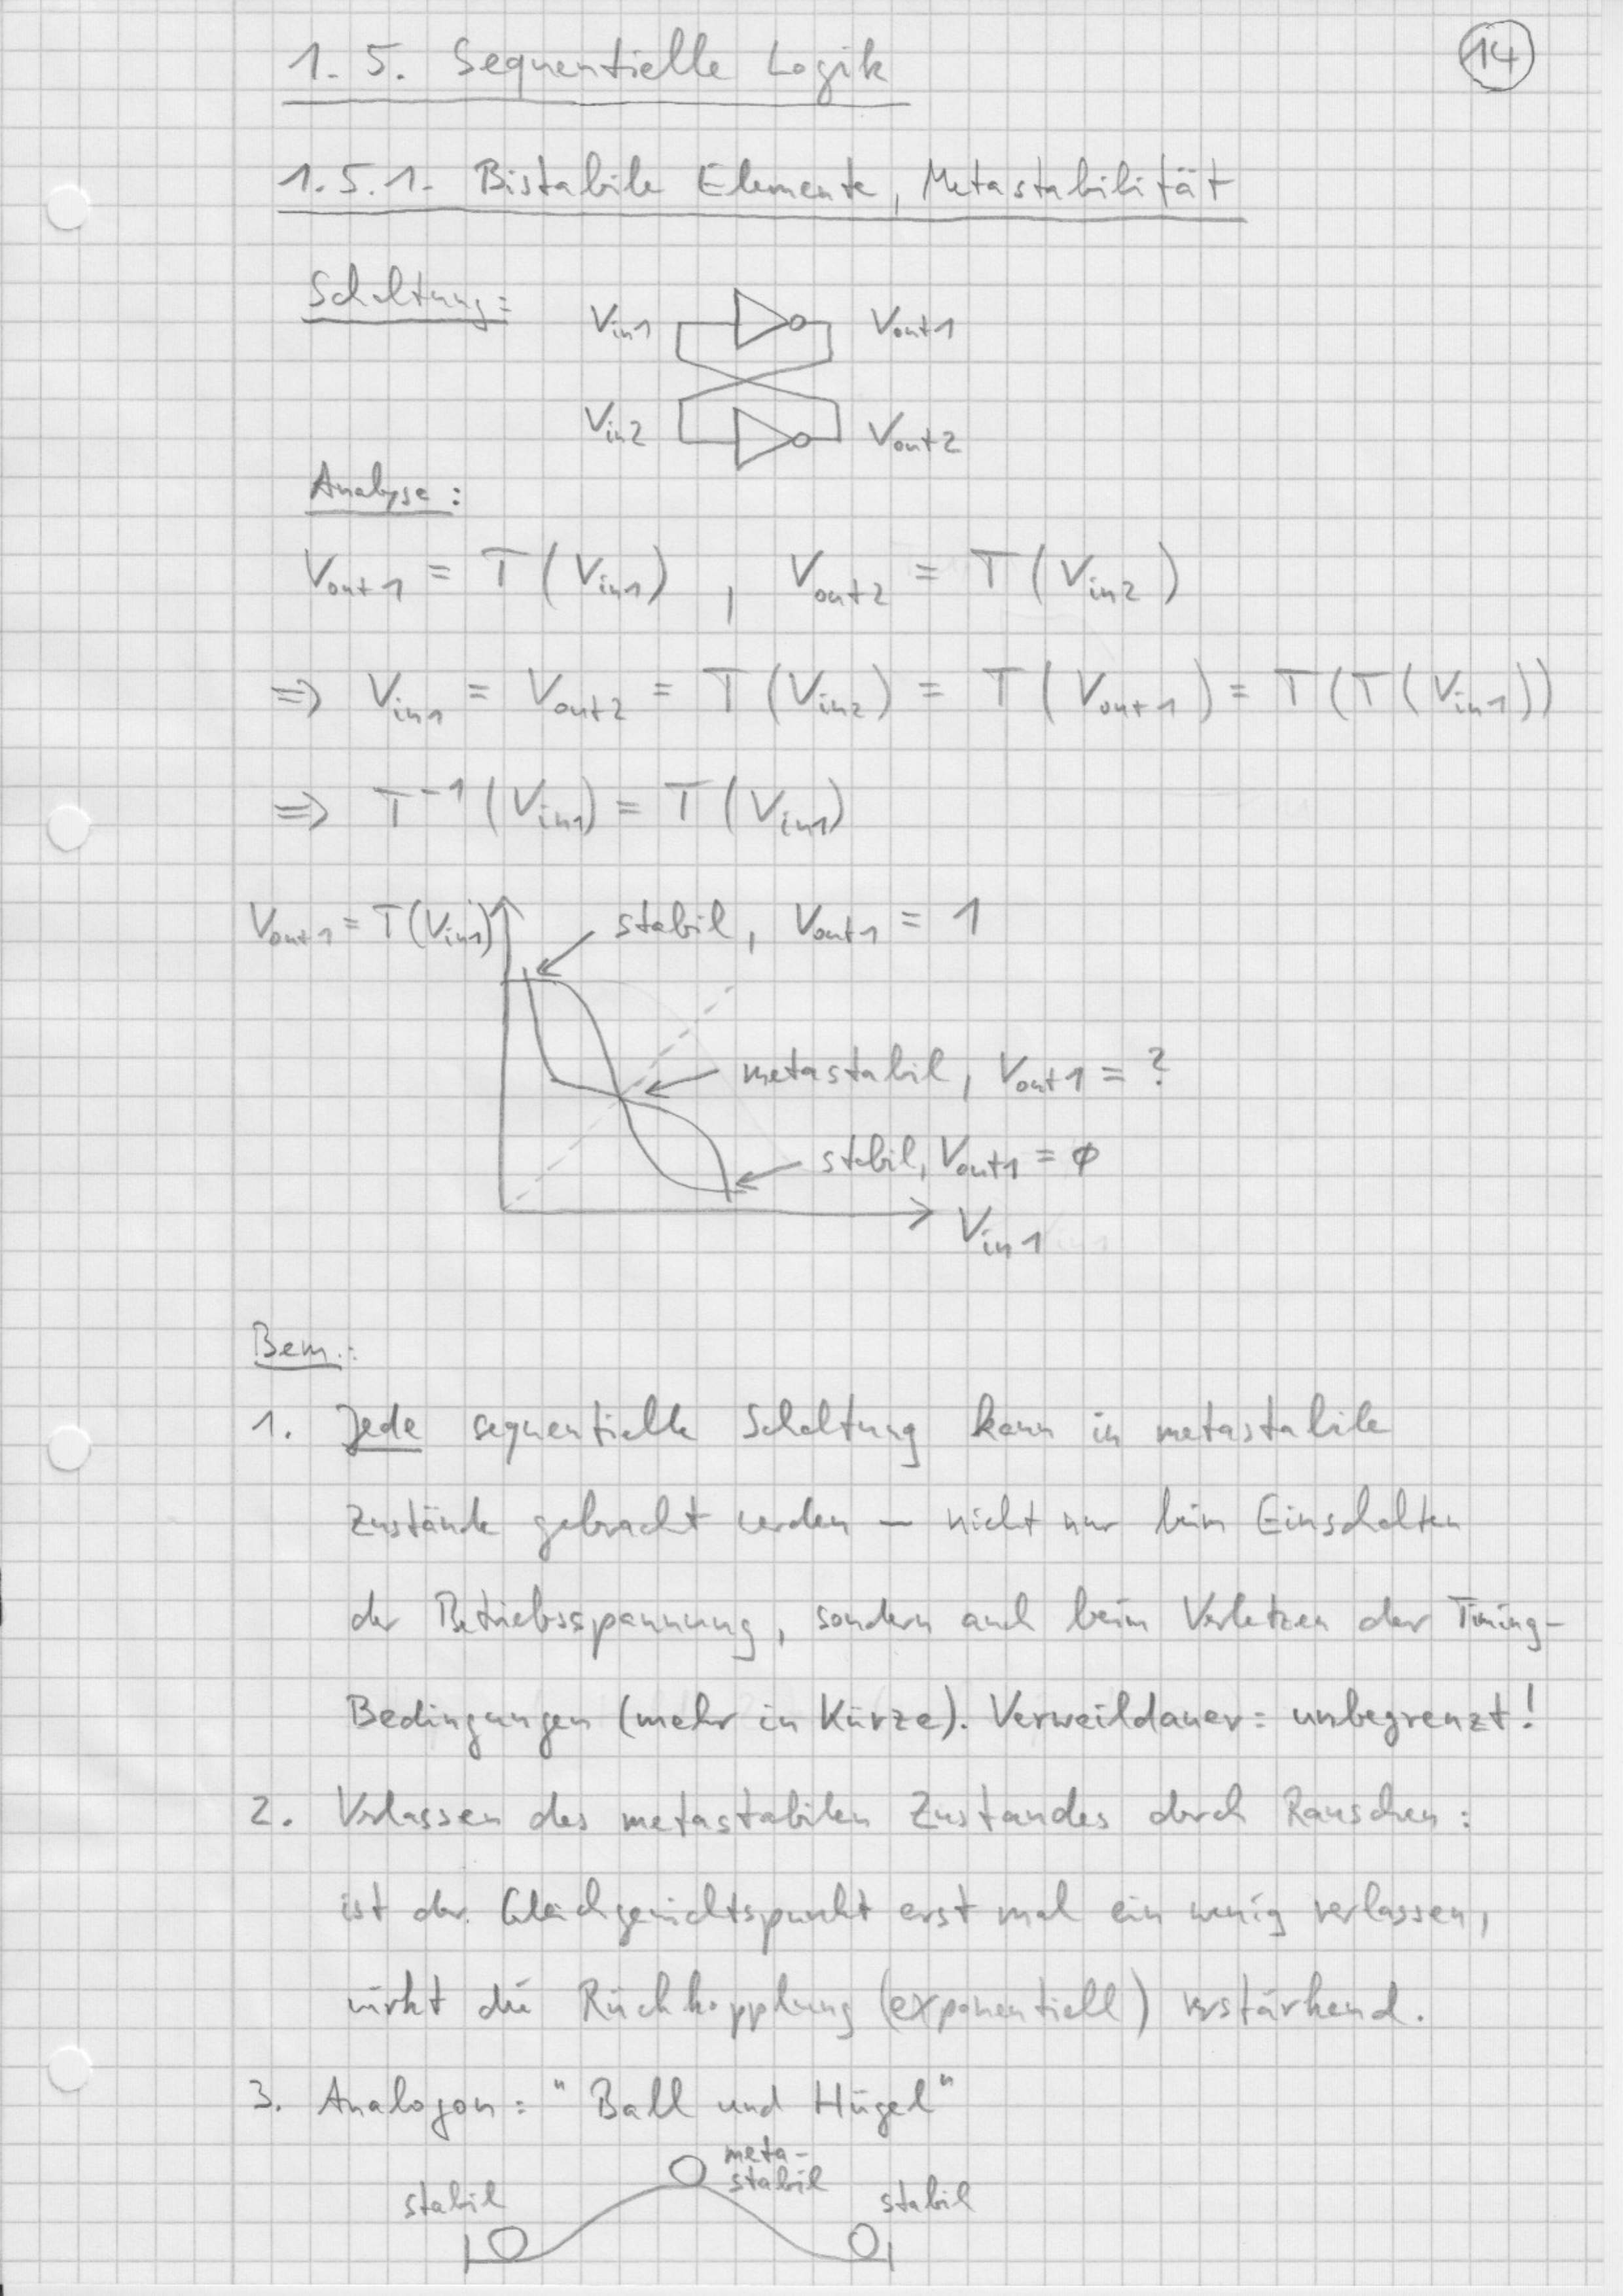 14
1.5. Sequentielle Logik
1.5.1. Bistabile Elemente, Metastabilität
Schaltung:
Vin1
Vout1
Vin2
Vout2
Analyse:
Vout1 = T(Vin1) , Vout2 = T(Vin2)
=> Vin1 = Vout2 = T(Vin2) = T(Vout1) = T(T(Vin1))
=> T⁻¹(Vin1) = T(Vin1)
Vout1 = T(Vin1)
stabil, Vout1 = 1
metastabil, Vout1 = ?
stabil, Vout1 = ϕ
Vin1
Bem.:
1. Jede sequentielle Schaltung kann in metastabile
Zustände gebracht werden – nicht nur beim Einschalten
der Betriebsspannung, sondern auch beim Verletzen der Timing-
Bedingungen (mehr in Kürze). Verweildauer: unbegrenzt!
2. Verlassen des metastabilen Zustandes durch Rauschen:
ist der Gleichgewichtspunkt erst mal ein wenig verlassen,
wirkt die Rückkopplung (exponentiell) verstärkend.
3. Analogon: "Ball und Hügel"
meta-
stabil
stabil
stabil